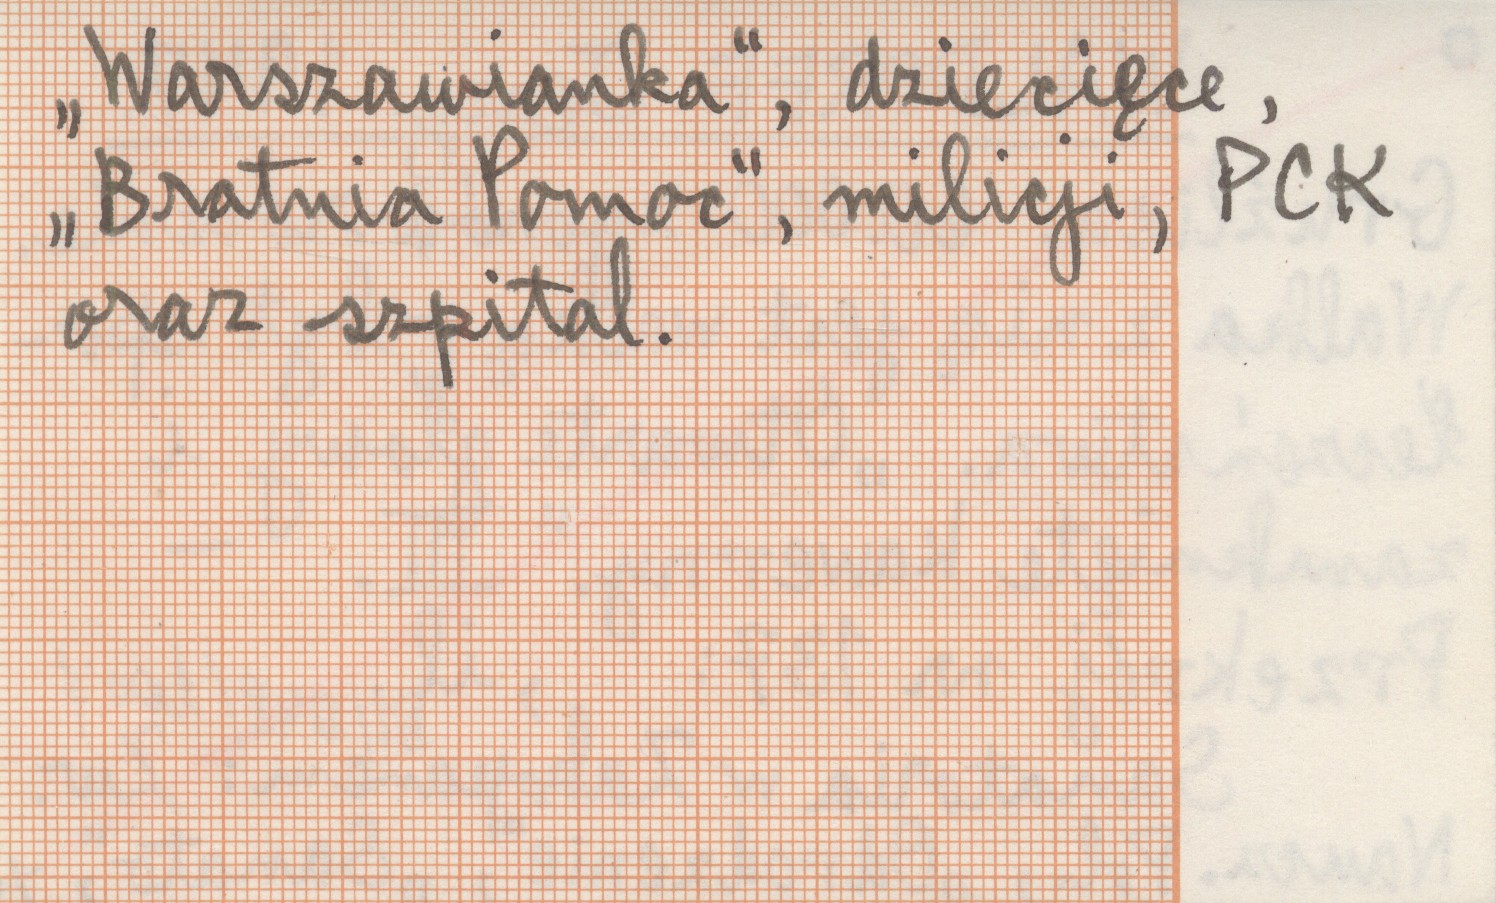 „Warszawianka“, dziecięce,
„Bratnia Pomoc“, milicji, PCK
oraz szpital.